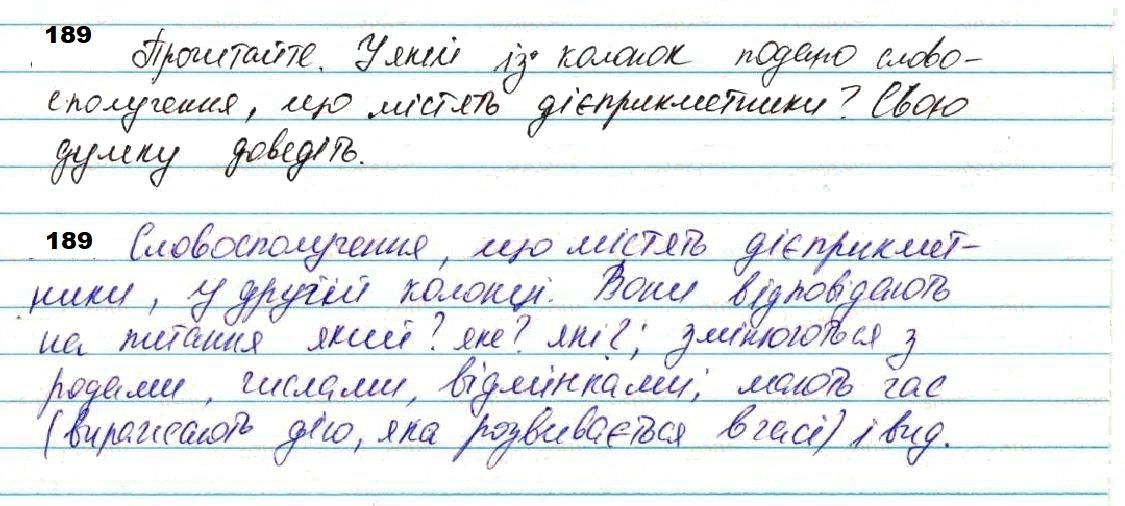 189
Прочитайте. У якій із колонок подано слово-
сполучення, що містять дієприкметники? Свою
думку доведіть.
189 Словосполучення, що містять дієприкмет-
ники, у другій колонці. Вони відповідають
на питання який? яке? які?; змінюються з
родами, числами, відмінками; мають час
(виражають дію, яка розвивається в часі) і вид.